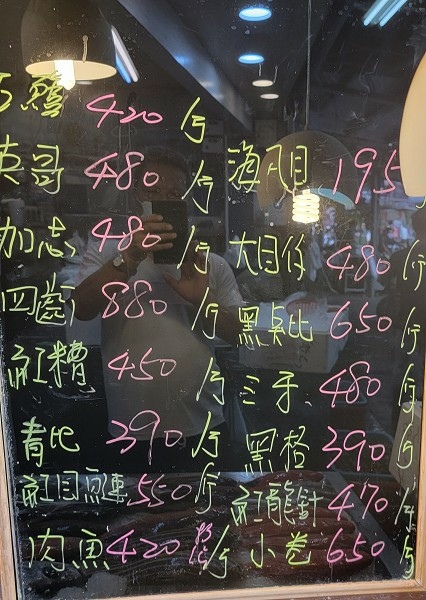 石鱸 420 /斤
英哥 480 /斤
加志 480 /斤
四齒 880 /斤
紅糟 450 /斤
青比 390 /斤
紅目鰱 550 /斤
肉魚 420 /斤
海凡目 195
大目仔 480 /斤
黑點比 650 /斤
三牙 480 /斤
黑格 390 /斤
紅龍針 470 /斤
小卷 650 /斤